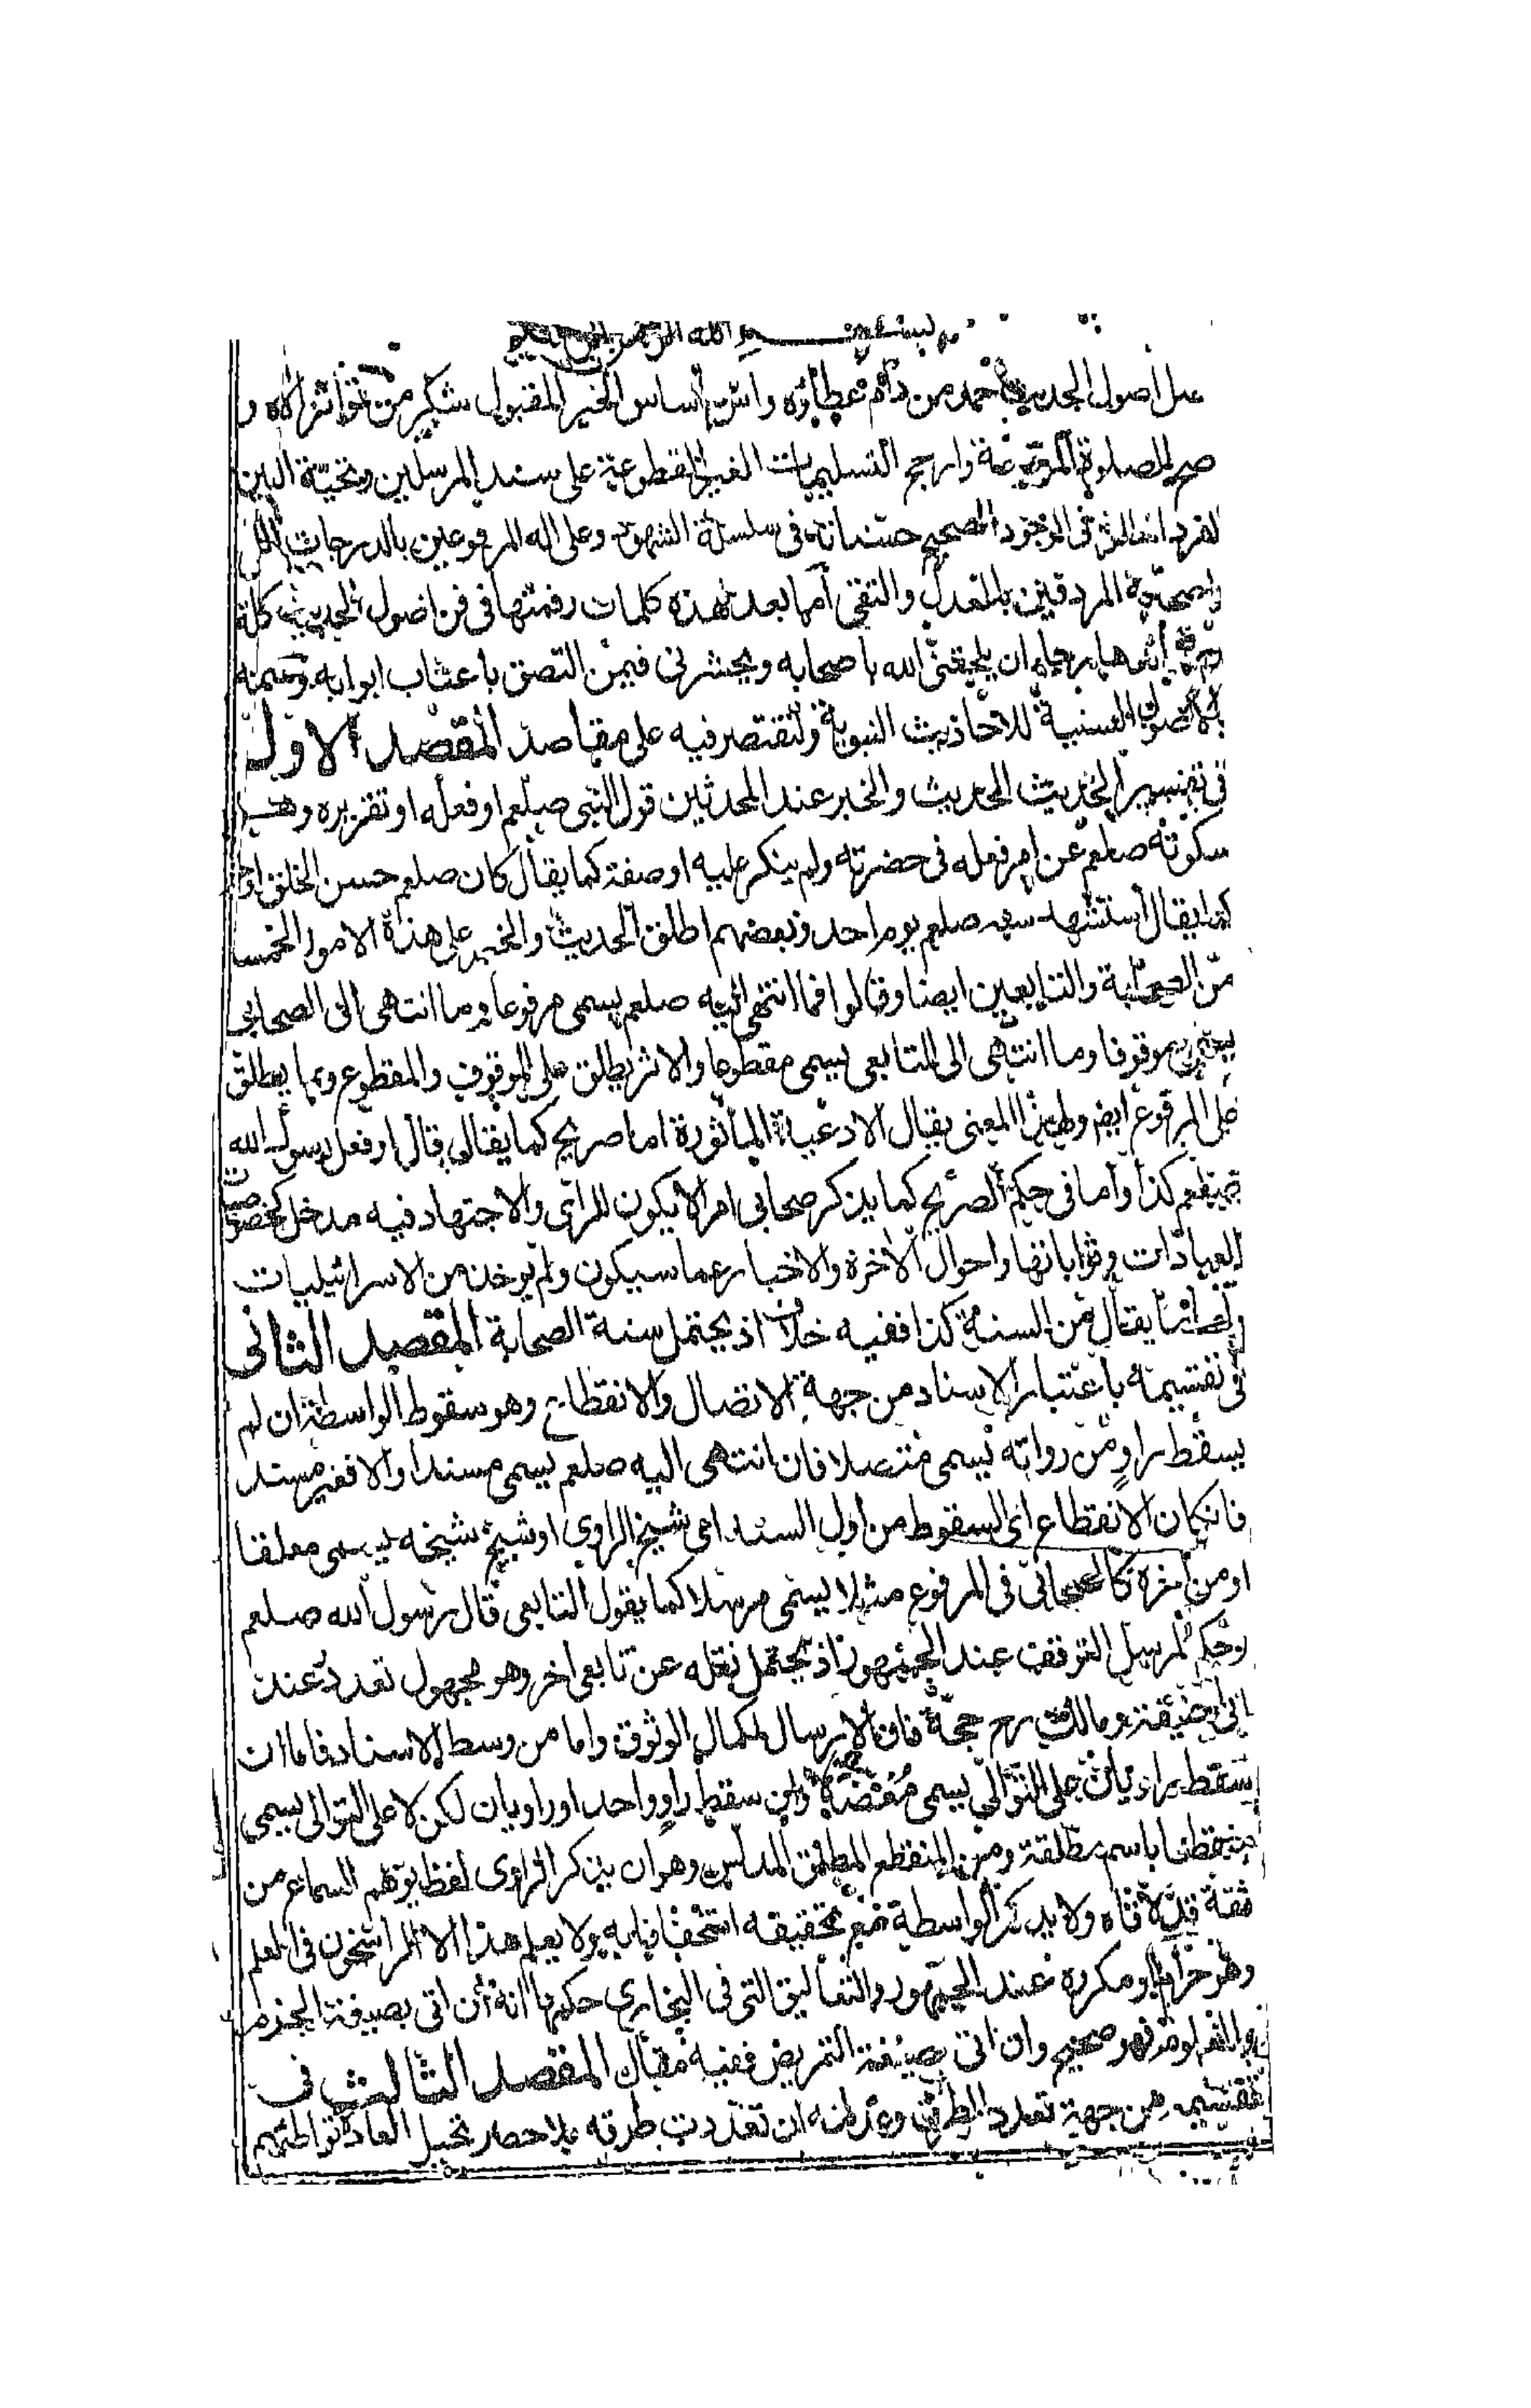 بسم الله الرحمن الرحيم
اصول الحديث حمد من دام عطاؤه واس اساس الخبر المقبول شكر من تواتر الاؤه و
الصلوة المرفوعة وارجح التسليمات الغير المقطوعة على سند المرسلين
لفرد فى الوجود الصحيح فى سلسلة الشهود وعلى اله المرفوعين بالدرجات
المردفين بالعدل والتقى اما بعد فهذه كلمات رقمتها فى فن اصول الحديث كلة
ان يلحقنى الله باصحابه ويحشرنى فيمن التصق باعتاب ابوابه وسميته
السنية للاحاديث النبوية ولنقتصر فيه على مقاصد المقصد الاول
فى تفسير الحديث الحديث والخبر عند المحدثين قول النبى صلعم او فعله او تقريره وهو
سكوته صلعم عن امر فعل فى حضرته ولم ينكر عليه او صفة كما يقال كان صلعم حسن الخلق
كما يقال استشهد صلعم يوم احد وبعضهم اطلق الحديث والخبر على هذه الامور الخمسة
من الصحابة والتابعين ايضا وقالوا فما انتهى اليه صلعم يسمى مرفوعا وما انتهى الى الصحابى
يسمى موقوفا وما انتهى الى التابعى يسمى مقطوعا والاثر يطلق على الموقوف والمقطوع وربما يطلق
على المرفوع ايضا ولهذا المعنى يقال الادعية المأثورة اما صريح كما يقال قال او فعل رسول الله
صلعم كذا واما فى حكم الصريح كما يذكر صحابى امرا لا يكون للراى والاجتهاد فيه مدخل
العبادات وثواباتها واحوال الاخرة والاخبار عما سيكون ولم يوخذ من الاسرائيليات
يقال من السنة كذا ففيه خلاف اذ يحتمل سنة الصحابة المقصد الثانى
فى تقسيمه باعتبار الاسناد من جهة الاتصال والانقطاع وهو سقوط الواسطة ان لم
يسقط راو من رواته يسمى متصلا فان انتهى اليه صلعم يسمى مسندا والا فغير مسند
فان كان الانقطاع اى السقوط من اول السند اعى شيخ الراوى او شيخ شيخه يسمى معلقا
او من اخره كالصحابى فى المرفوع مثلا يسمى مرسلا كما يقول التابعى قال رسول الله صلعم
وحكم المرسل التوقف عند الجمهور اذ يحتمل نقله عن تابعى اخر وهو مجهول عند
ابى حنيفة ومالك رح حجة فان الارسال لكمال الوثوق واما من وسط الاسناد فاما ان
سقط راويان على التوالى يسمى معضلا وان سقط راو واحد او راويان لكن لا على التوالى يسمى
منقطعا باسم مطلقة ومن المنقطع المطلق المدلس وهو ان يذكر الراوى لفظ يوهم السماع من
ثقة لاقاه ولا يذكر الواسطة مع تحقيقه استخفافا به ولا يعلم هذا الا الراسخون فى العلم
وهو حرام او مكروه عند الجمهور والتعاليق التى فى البخارى حكمها انه ان اتى بصيغة الجزم
والمعلوم فهو صحيح وان اتى بصيغة التمريض ففيه مقال المقصد الثالث فى
تقسيمه من جهة تعدد الطرق وعدمه ان تعددت طرقه بلا حصر تحيل العادة تواطئهم